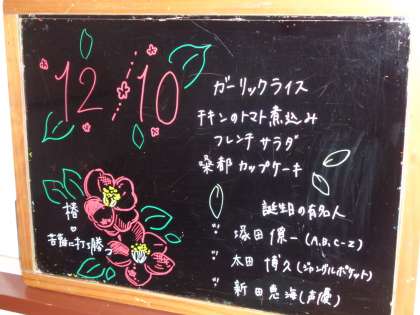 12/10
ガーリックライス
チキンのトマト煮込み
フレンチサラダ
桑都カップケーキ
椿
苦難に打ち勝つ
誕生日の有名人
塚田僚一(A.B.C-Z)
太田博久(ジャングルポケット)
新田恵海(声優)